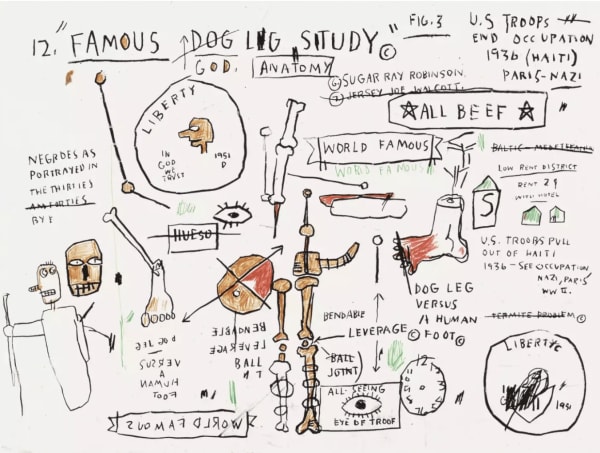 12. "FAMOUS DOG LEG STUDY" ©
GOD. ANATOMY
FIG. 3
U.S TROOPS
END OCCUPATION
1936 (HAITI)
PARIS-NAZI
⑥ SUGAR RAY ROBINSON.
⑦ JERSEY JOE WALCOTT.
☆ ALL BEEF ☆
LIBERTY
IN
GOD
WE
TRUST
1951
D
NEGROES AS
PORTRAYED IN
THE THIRTIES
AN FORTIES
HUESO
WORLD FAMOUS
WORLD FAMOUS
LOW RENT DISTRICT
RENT 29
S
U.S. TROOPS PULL
OUT OF HAITI
1936 - SEE OCCUPATION
NAZI, PARIS
WW II.
TERMITE PROBLEM ©
DOG LEG
VERSUS
A HUMAN
© FOOT ©
DOG LEG
VERSUS
A
HUMAN
FOOT
BENDABLE
LEVERAGE
BALL
BENDABLE
LEVERAGE
BALL
JOINT
ALL-SEEING
EYE OF TROOF
12
WORLD FAMOUS
LIBERTY
1951